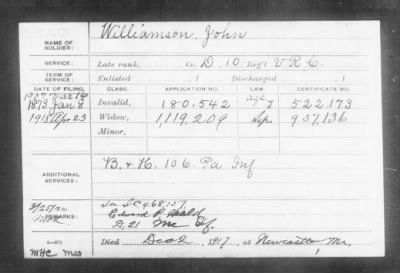 NAME OF SOLDIER: Williamson, John
SERVICE: Late rank, Co. D, 10 Reg't V R C
TERM OF SERVICE: Enlisted , 1 Discharged , 1
DATE OF FILING. CLASS. APPLICATION NO. LAW. CERTIFICATE NO.
1873 Jan 8 Invalid, 180.542 age 522.173
1918 Apr 23 Widow, 1,119,209 957,136
Minor,
ADDITIONAL SERVICES: B. & H. 106. Pa Inf
REMARKS:
Died Dec 2, 1917, at Newcastle Me.